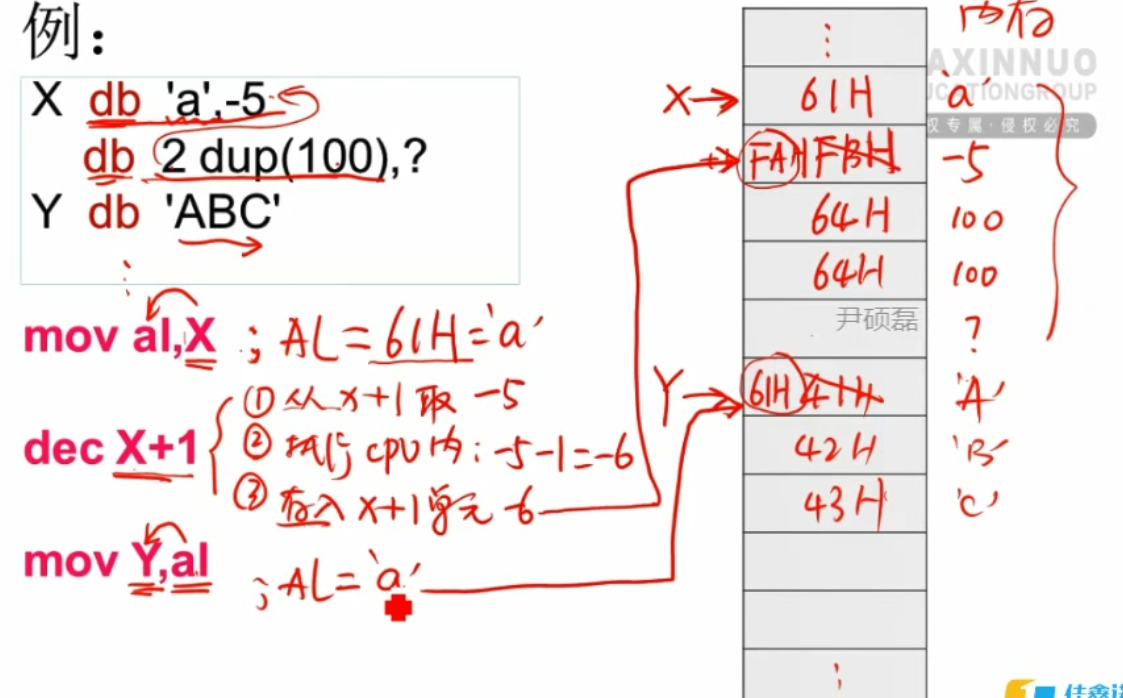 例：
X db 'a',-5
db 2 dup(100),?
Y db 'ABC'
⋮
mov al,X ; AL = 61H = 'a'
① 从 X+1 取 -5
dec X+1 ② 执行 CPU内 : -5-1=-6
③ 存入 X+1单元 -6
mov Y,al ; AL = 'a'
内存
⋮
X→ 61H 'a'
FAH FBH -5
64H 100
64H 100
尹硕磊 ?
Y→ 61H 41H 'A'
42H 'B'
43H 'C'
⋮
AXINNUO
UCATIONGROUP
权专属·侵权必究